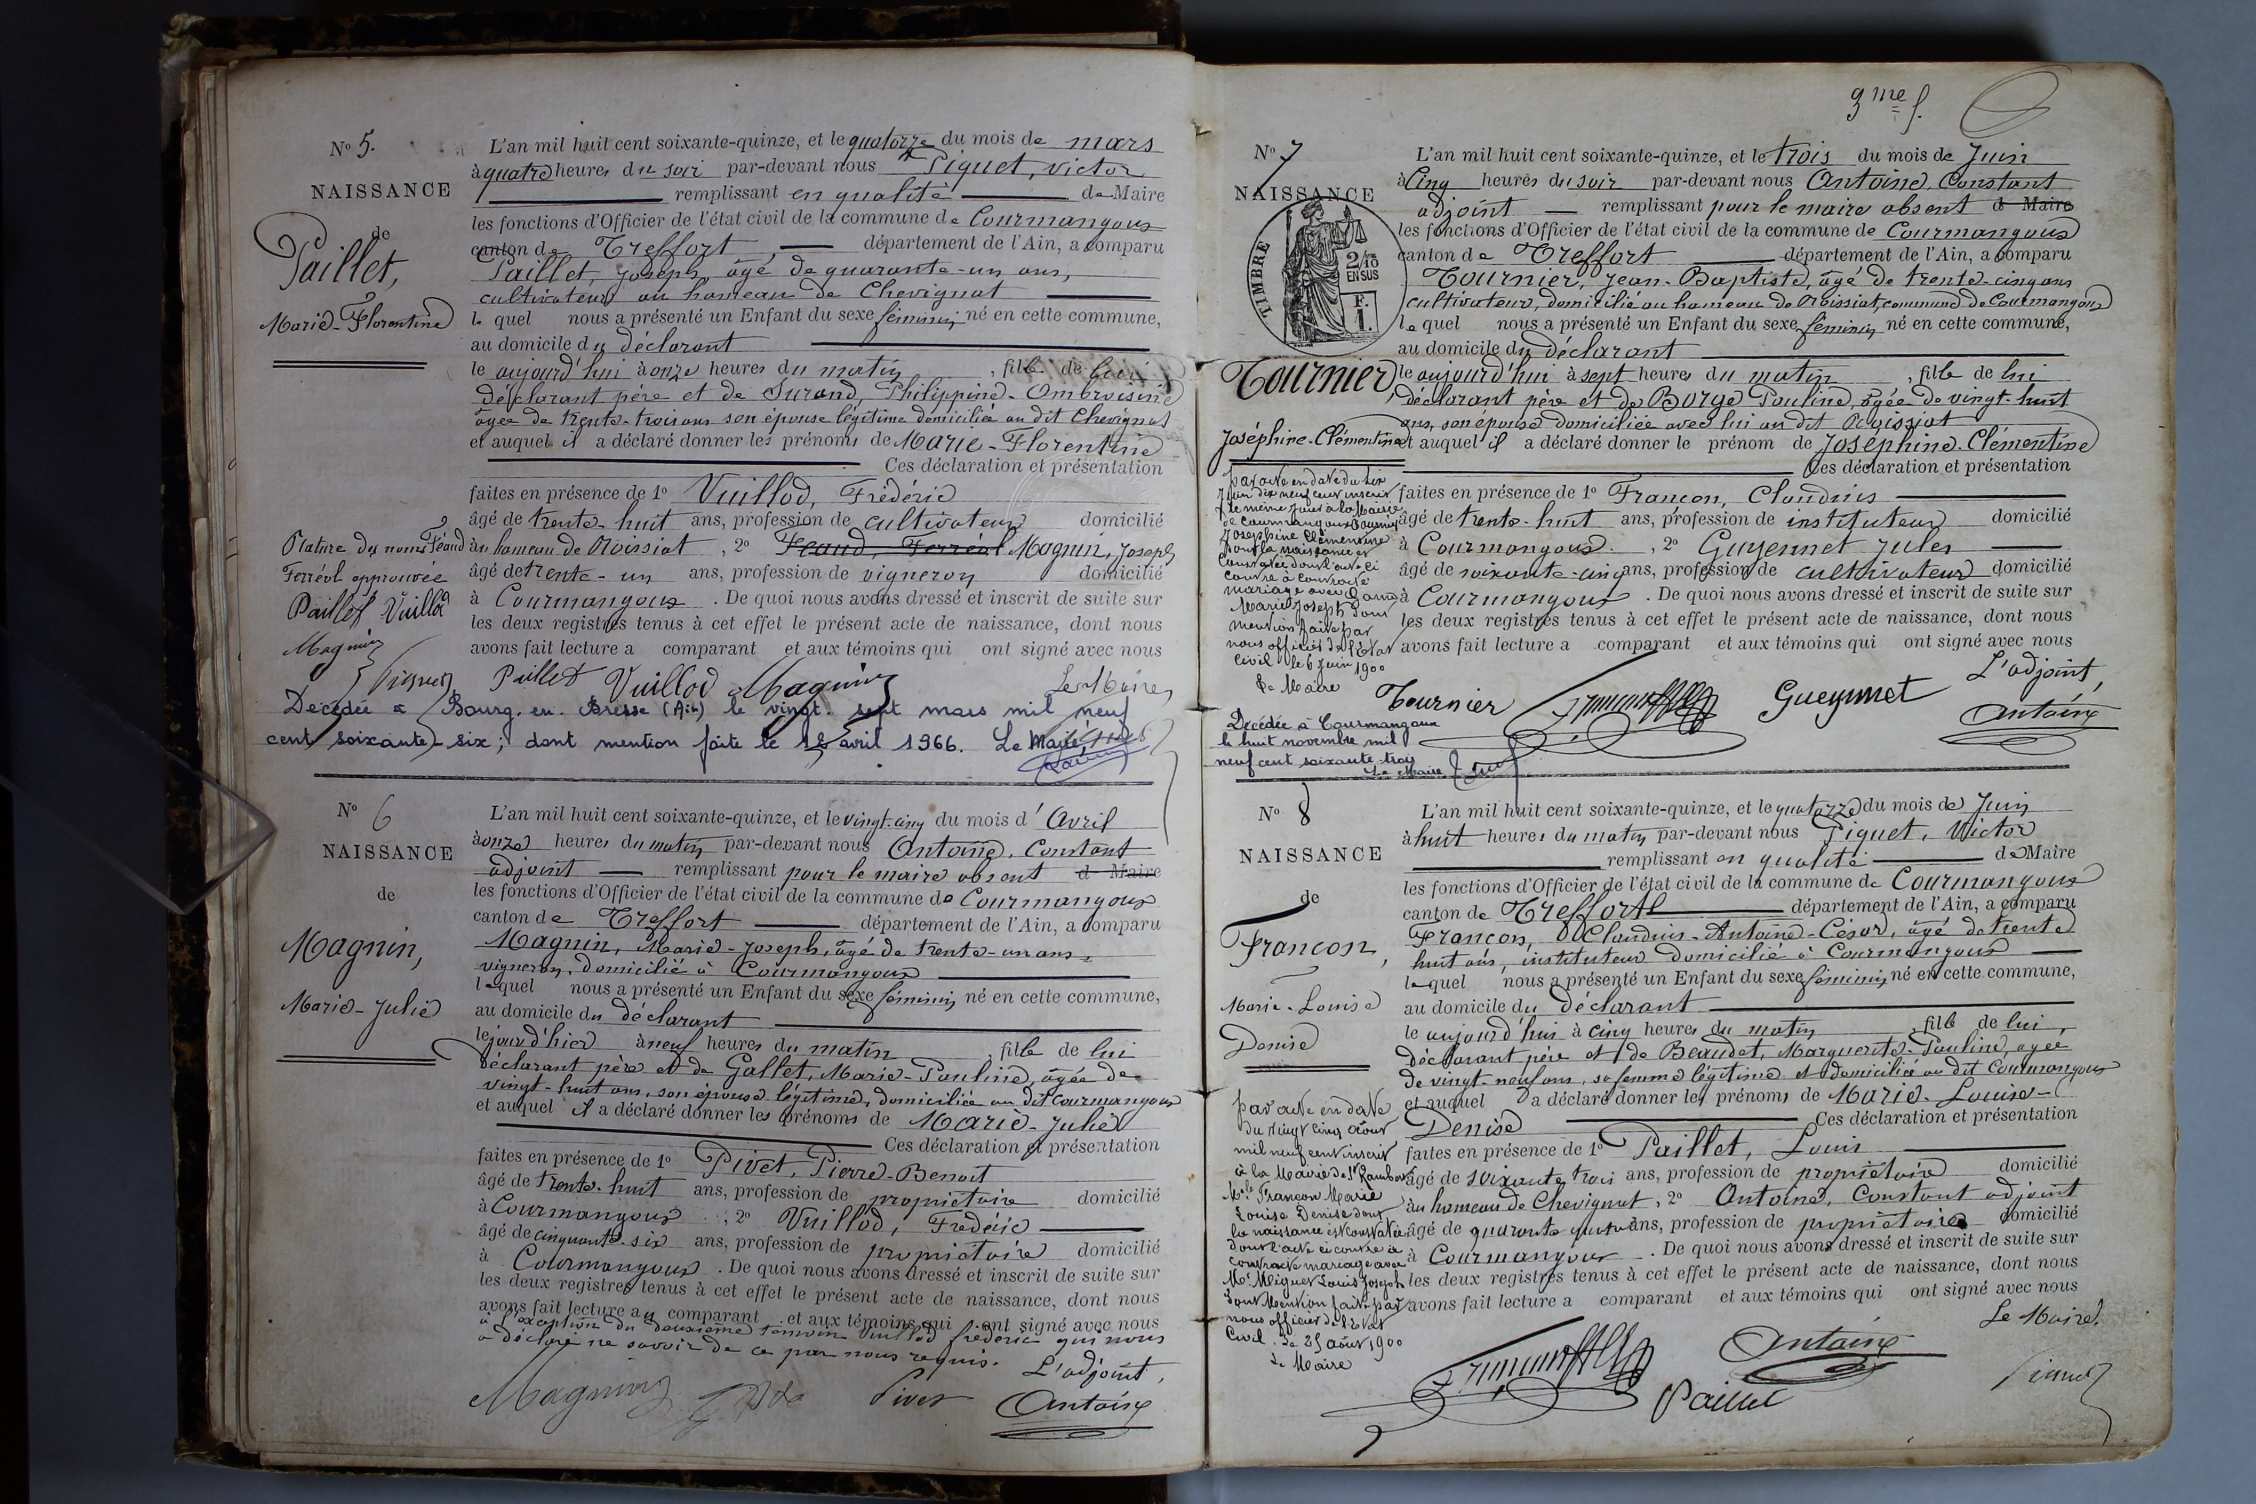 N° 5.
NAISSANCE
de
Paillet,
Marie-Florentine
L'an mil huit cent soixante-quinze, et le quatorze du mois de mars
à quatre heures du soir par-devant nous Piguet, Victor
remplissant en qualité de Maire
les fonctions d'Officier de l'état civil de la commune de Courmangoux
canton de Treffort, département de l'Ain, a comparu
Paillet, Joseph, âgé de quarante-un ans,
cultivateur au hameau de Chevignat
le quel nous a présenté un Enfant du sexe féminin né en cette commune,
au domicile du déclarant
le aujourd'hui à onze heures du matin, fille de lui
déclarant père et de Durand, Philippine-Ambroisine
âgée de trente-trois ans son épouse légitime domiciliée au dit Chevignat
et auquel il a déclaré donner les prénoms de Marie-Florentine
Ces déclaration et présentation
faites en présence de 1° Vuillod, Frédéric
âgé de trente-huit ans, profession de cultivateur domicilié
au hameau de Roissiat, 2° Féaud, Ferréol Magnin, Joseph
âgé de trente-un ans, profession de vigneron domicilié
à Courmangoux. De quoi nous avons dressé et inscrit de suite sur
les deux registres tenus à cet effet le présent acte de naissance, dont nous
avons fait lecture a comparant et aux témoins qui ont signé avec nous
Rature du nom Féaud
Ferréol approuvée
Paillet Vuillod
Magnin
Piguet
Paillet Vuillod Magnin Le Maire,
Décédée à Bourg-en-Bresse (Ain) le vingt-sept mars mil neuf
cent soixante-six; dont mention faite le 18 avril 1966. Le Maire,
N° 6
NAISSANCE
de
Magnin,
Marie-Julie
L'an mil huit cent soixante-quinze, et le vingt-cinq du mois d'Avril
à onze heures du matin par-devant nous Antoine, Constant
adjoint remplissant pour le maire absent d Maire
les fonctions d'Officier de l'état civil de la commune de Courmangoux
canton de Treffort département de l'Ain, a comparu
Magnin, Marie-Joseph, âgé de trente-un ans,
vigneron, domicilié à Courmangoux
lequel nous a présenté un Enfant du sexe féminin né en cette commune,
au domicile du déclarant
le jour d'hier à neuf heures du matin, fille de lui
déclarant père et de Gallet, Marie-Pauline, âgée de
vingt-huit ans, son épouse légitime, domiciliée au dit Courmangoux
et auquel il a déclaré donner les prénoms de Marie-Julie
Ces déclaration et présentation
faites en présence de 1° Pivet, Pierre-Benoit
âgé de trente-huit ans, profession de propriétaire domicilié
à Courmangoux, 2° Vuillod, Frédéric
âgé de cinquante-six ans, profession de propriétaire domicilié
à Courmangoux. De quoi nous avons dressé et inscrit de suite sur
les deux registres tenus à cet effet le présent acte de naissance, dont nous
avons fait lecture au comparant et aux témoins qui ont signé avec nous
à l'exception du deuxième témoin Vuillod frédéric qui nous
a déclaré ne savoir de ce par nous requis.
L'adjoint,
Magnin Pivet Antoine
3me f.
N° 7
NAISSANCE
TIMBRE
2/10
EN SUS
F.
1.
Tournier,
Joséphine-Clémentine
L'an mil huit cent soixante-quinze, et le trois du mois de Juin
à Cinq heures du soir par-devant nous Antoine, Constant
adjoint remplissant pour le maire absent d Maire
les fonctions d'Officier de l'état civil de la commune de Courmangoux
canton de Treffort département de l'Ain, a comparu
Tournier, Jean-Baptiste, âgé de trente-cinq ans
cultivateur, domicilié au hameau de Roissiat, commune de Courmangoux
lequel nous a présenté un Enfant du sexe féminin né en cette commune,
au domicile du déclarant
le aujourd'hui à sept heures du matin, fille de lui
déclarant père et de Borge Pauline, âgée de vingt-huit
ans, son épouse domiciliée avec lui au dit Roissiat
et auquel il a déclaré donner le prénom de Joséphine-Clémentine
Ces déclaration et présentation
faites en présence de 1° Françon, Claudius
âgé de trente-huit ans, profession de instituteur domicilié
à Courmangoux, 2° Guyennet Jules
âgé de soixante-cinq ans, profession de cultivateur domicilié
à Courmangoux. De quoi nous avons dressé et inscrit de suite sur
les deux registres tenus à cet effet le présent acte de naissance, dont nous
avons fait lecture a comparant et aux témoins qui ont signé avec nous
par acte en date du six
Juin dix neuf cent inscrit
le même jour à la Mairie
de Courmangoux Tournier
Joséphine Clémentine
dont la naissance est
constatée dont l'acte ci
contre a contracté
mariage avec
Marie Joseph dont
mention faite par
nous officier de l'Etat
Civil le 6 Juin 1900
Le Maire
L'adjoint,
Tournier Gueynnet Antoine
Décédée à Courmangoux
le huit novembre mil
neuf cent soixante-trois
Le Maire
N° 8
NAISSANCE
de
Françon,
Marie-Louise
Denise
L'an mil huit cent soixante-quinze, et le quatorze du mois de Juin
à huit heures du matin par-devant nous Piguet, Victor
remplissant en qualité de Maire
les fonctions d'Officier de l'état civil de la commune de Courmangoux
canton de Treffort département de l'Ain, a comparu
Françon, Claudius-Antoine-César, âgé de trente
huit ans, instituteur domicilié à Courmangoux
lequel nous a présenté un Enfant du sexe féminin né en cette commune,
au domicile du déclarant
le aujourd'hui à cinq heures du matin, fille de lui,
déclarant père et de Beaudet, Marguerite-Pauline, agée
de vingt-neuf ans, sa femme légitime et domiciliée au dit Courmangoux
et auquel a déclaré donner les prénoms de Marie-Louise-
Denise Ces déclaration et présentation
faites en présence de 1° Paillet, Louis
âgé de soixante trois ans, profession de propriétaire domicilié
au hameau de Chevignat, 2° Antoine, Constant adjoint
âgé de quarante quatre ans, profession de propriétaire domicilié
à Courmangoux. De quoi nous avons dressé et inscrit de suite sur
les deux registres tenus à cet effet le présent acte de naissance, dont nous
avons fait lecture a comparant et aux témoins qui ont signé avec nous
par acte en date
du vingt cinq août
mil neuf cent inscrit
à la Mairie de St Rambert
Melle Françon Marie
Louise Denise dont
la naissance est constatée
dont l'acte ci contre a
contracté mariage avec
Mr Miguet Louis Joseph
dont Mention faite par
nous officier de l'Etat
Civil. Le 25 août 1900
Le Maire
Le Maire,
Antoine
Paillet Piguet